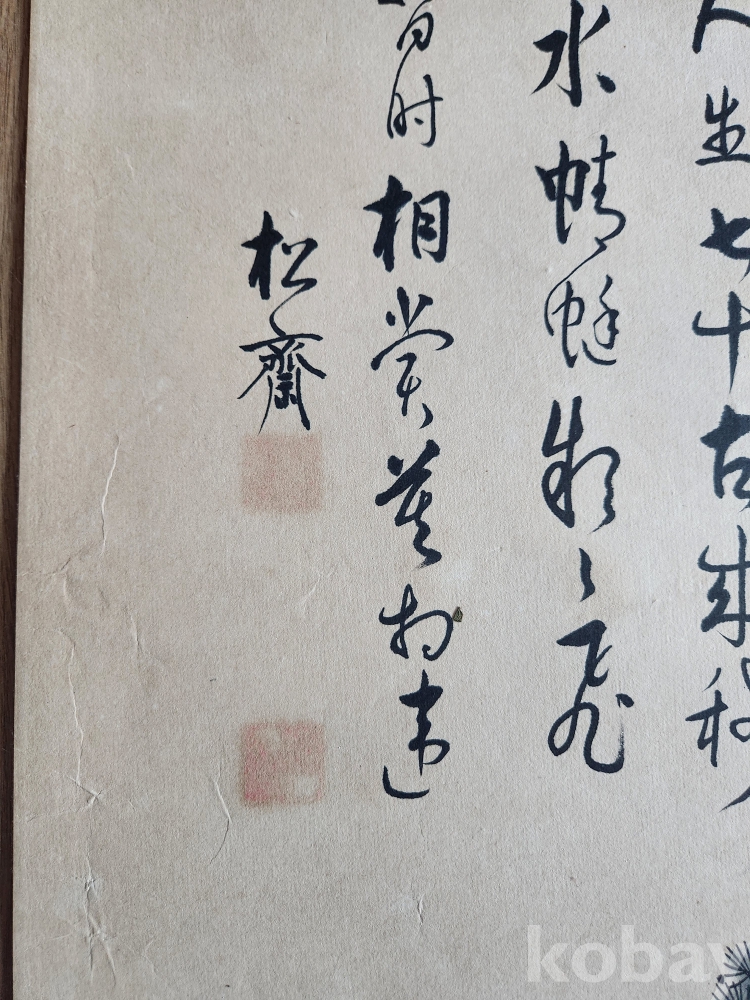 人生七十古来稀
水蜻蜓款〻飛
时相賞莫相違
松齋
kobay